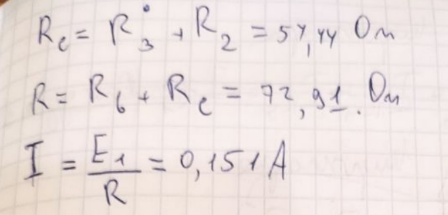 Rc = R3 + R2 = 57,44 Ом
R = R6 + Rc = 72,91 Ом
I = E1/R = 0,151 A